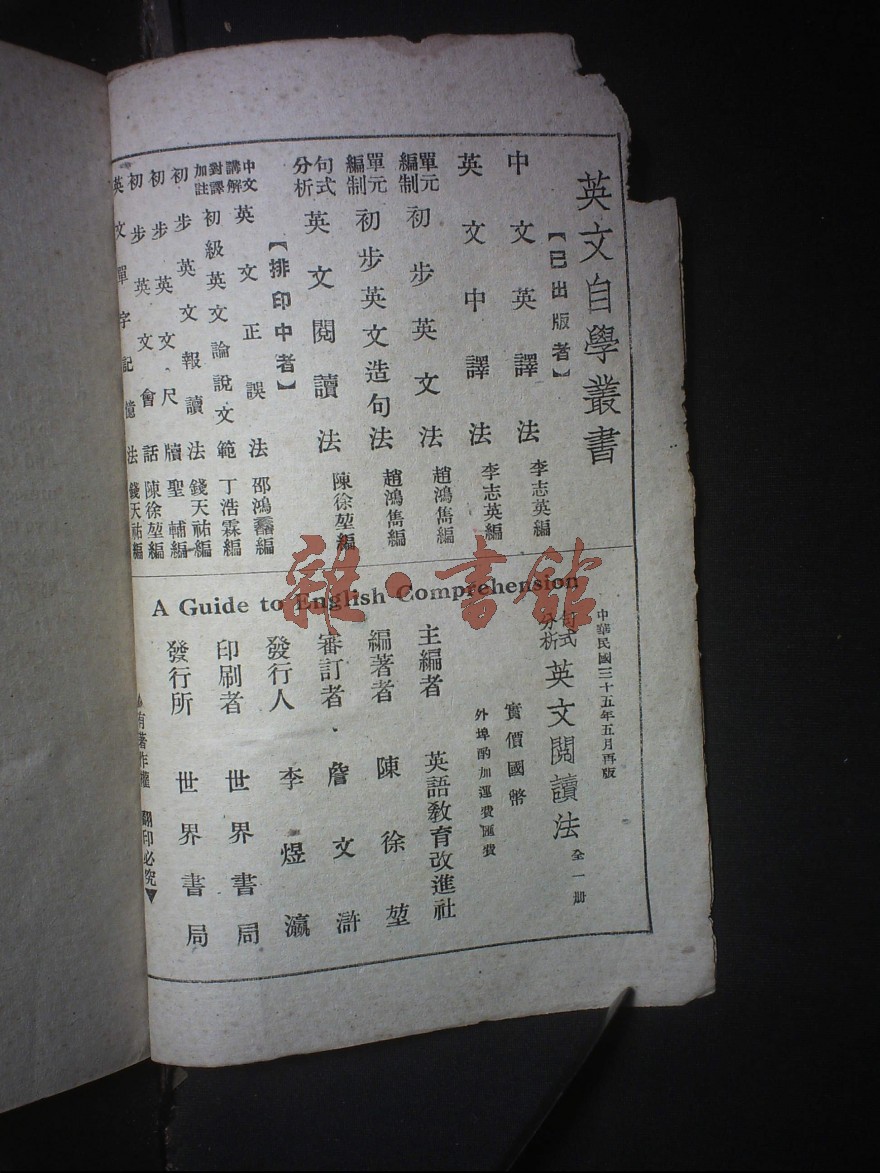 英文自學叢書
【已出版者】
中文英譯法 李志英編
英文中譯法 李志英編
單元編制 初步英文法 趙鴻雋編
單元編制 初步英文造句法 趙鴻雋編
句式分析 英文閱讀法 陳徐堃編
【排印中者】
英文正誤法 邵鴻馫編
中文講解 對譯加註 初級英文論說文範 丁浩霖編
初步英文報讀法 錢天祐編
初步英文尺牘 聖輔編
初步英文會話 陳徐堃編
英文單字記憶法 錢天祐編
A Guide to English Comprehension
中華民國三十五年五月再版
句式分析 英文閱讀法 全一册
實價國幣
外埠酌加運費匯費
主編者 英語教育改進社
編著者 陳徐堃
審訂者 詹文滸
發行人 李煜瀛
印刷者 世界書局
發行所 世界書局
有著作權 翻印必究
雜·書館